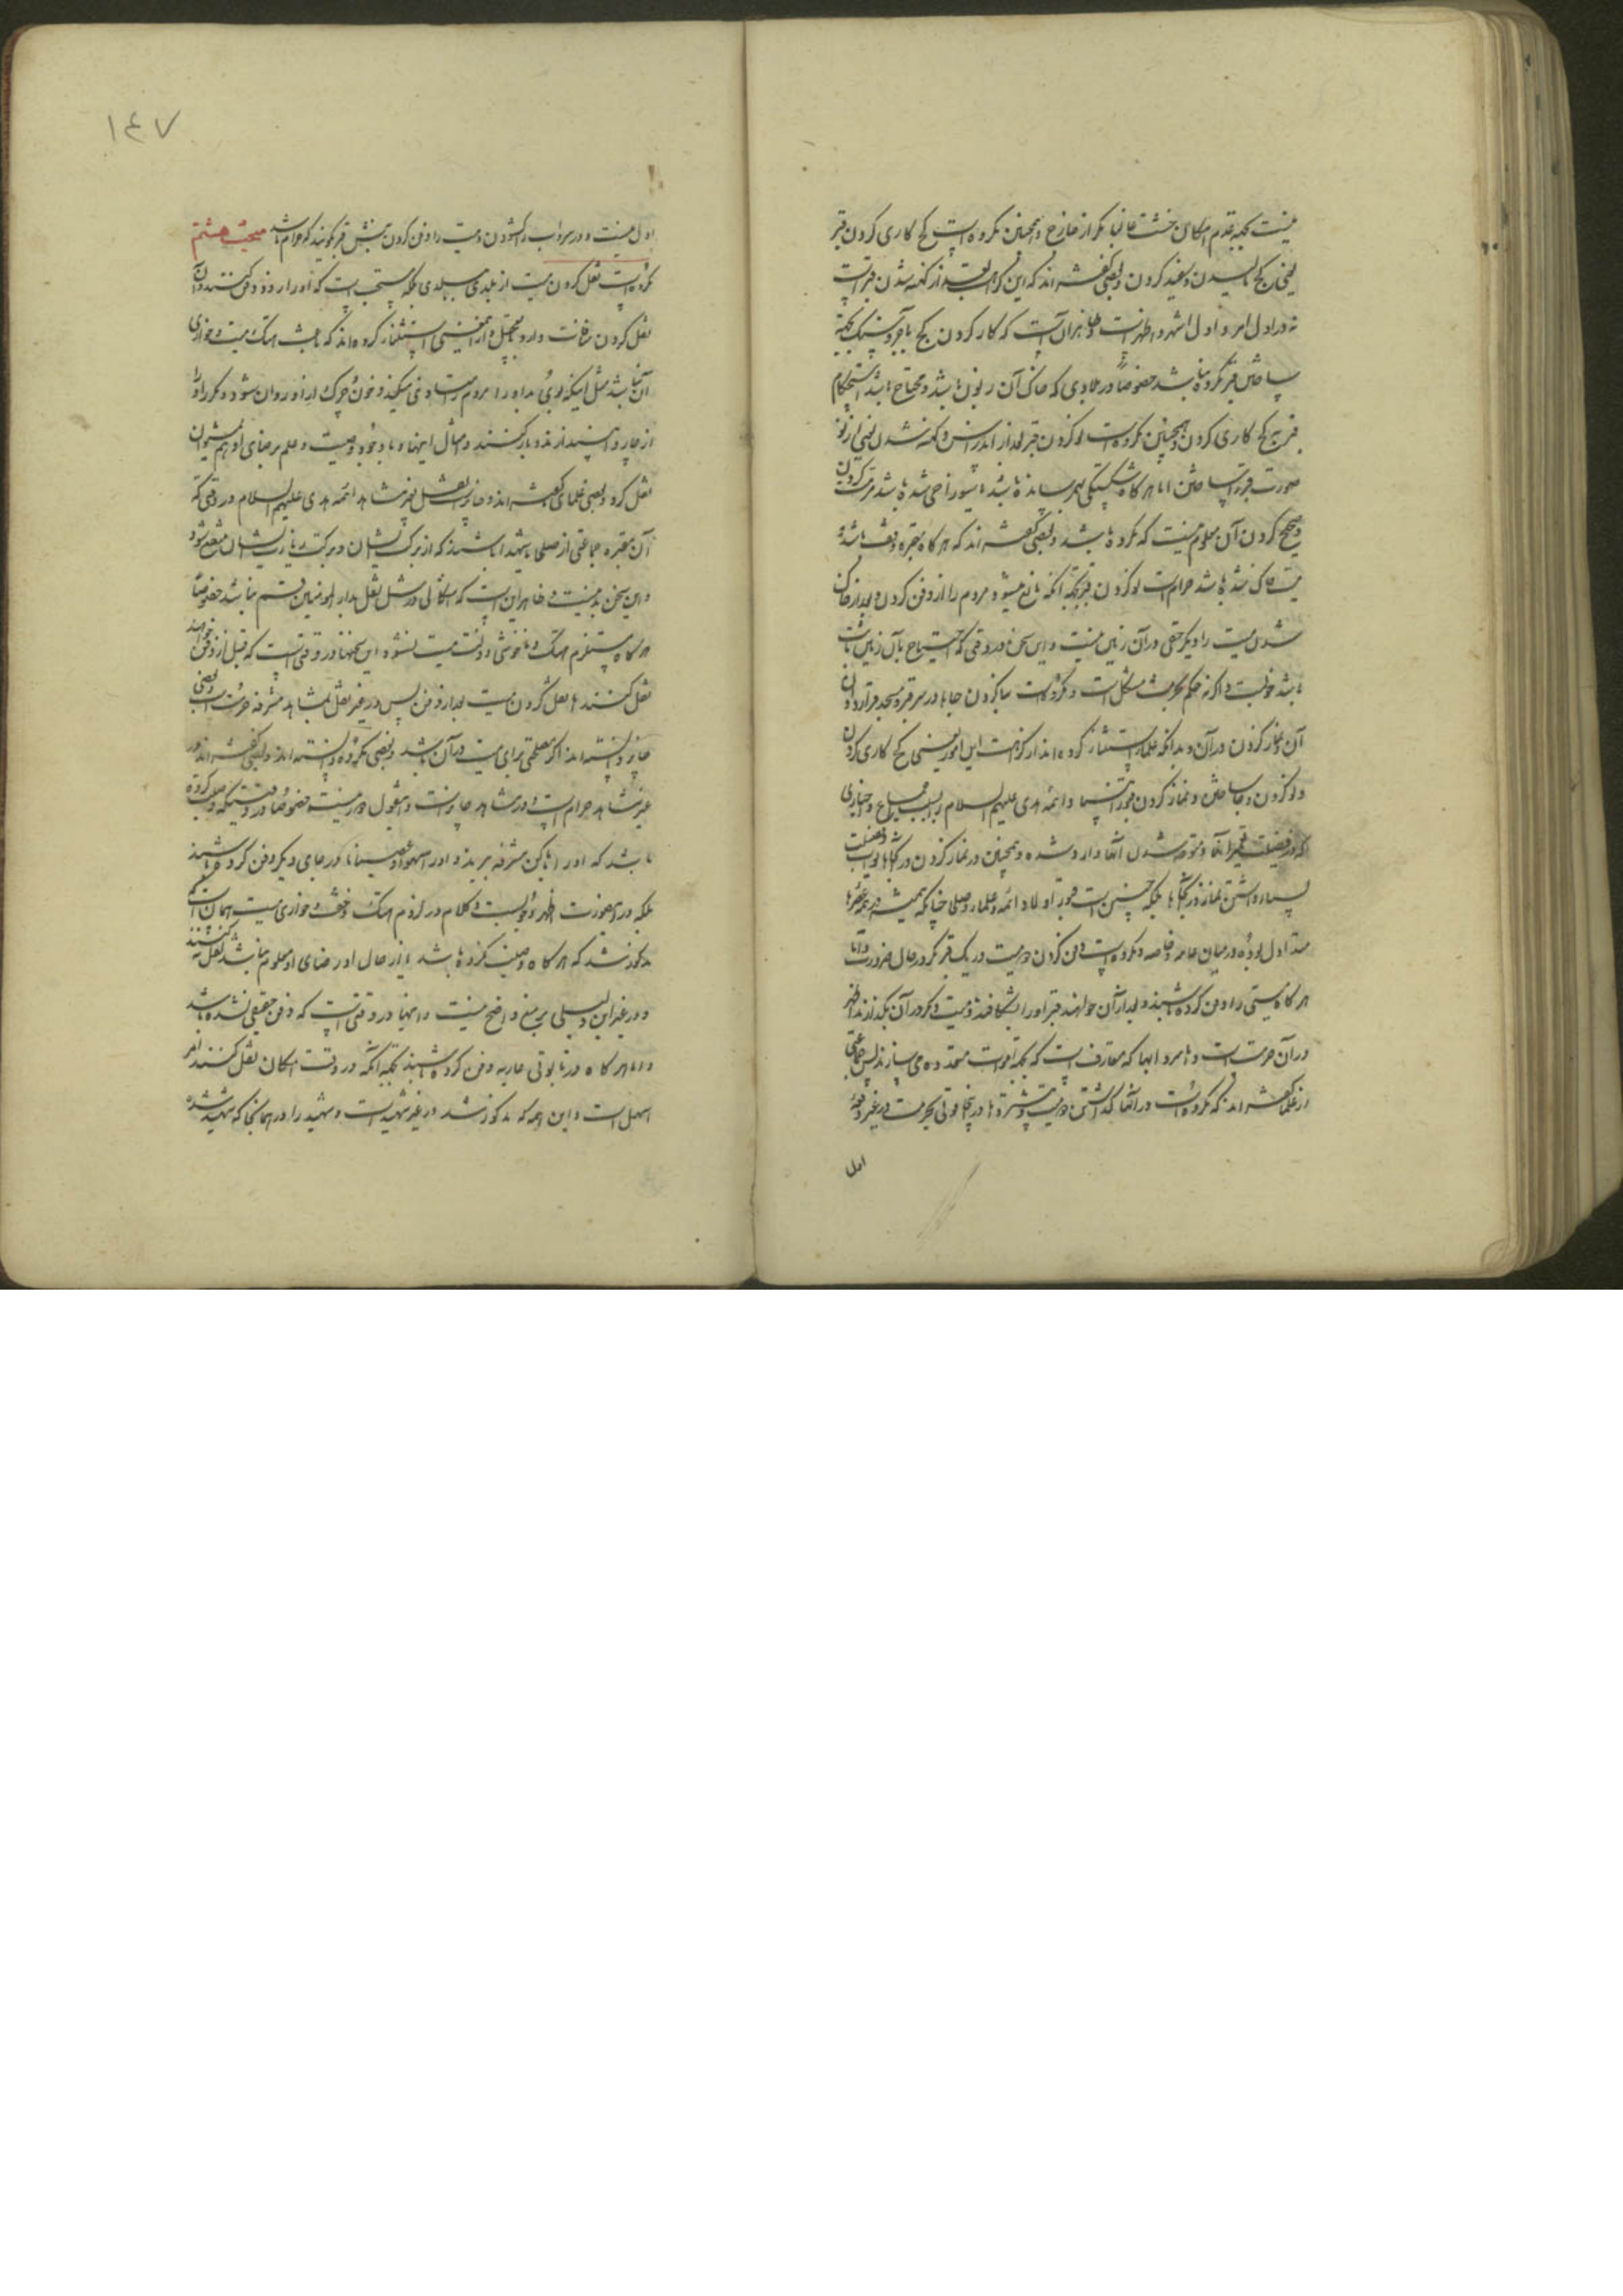 نیست بجهة عدم امکان خشت غالبا مکر از خارج و همچنین مکروه است کج کاری کردن قبر
یعنی بکج مالیدن و سفید کردن و بعضی گفته‌اند که این کراهت بعد از کهنه شدن قبر است
نه در اول امر و اول اشهر و اظهر است و ظاهر آن است که کار کردن بکج با آجر و سنک بجهة
ساختن قبر مکروه نباشد خصوصاً در بلادی که خاک آن زبون باشد و محتاج باشد استحکام
قبر بکج کاری کردن و همچنین مکروه است نو کردن قبر بعد از اندراس و کهنه شدن یعنی از نو
صورت قبر را ساختن اما هرکاه شکستکی بهم رسانده باشد یا سوراخی شده باشد مرمت کردن
و صحیح کردن آن معلوم نیست که مکروه باشد و بعضی گفته‌اند که هرکاه مقبره وقف باشد و
میت خاک شده باشد حرام است نو کردن قبر بجهة آنکه مانع میشود مردم را از دفن کردن و بعد از خاک
شدن میت را دیکر حقی در آن زمین نیست و این سخن در وقتی که احتیاج بآن زمین باشد
باشد خوبست و اکر نه حکم بحرمت مشکل است و مکروه است بنا کردن جاها در سر قبر و مسجد قرار دادن
آن و نماز کردن در آن و بدانکه علما استثنا کرده‌اند از کراهت این امور یعنی کج کاری کردن
و نو کردن و بنا ساختن و نماز کردن قبور انبیا و ائمه هدی علیهم السلام را بسبب اجماع و اخباری
که در فضیلت تعمیر آنها و متوجه شدن آنها وارد شده و همچنین در نماز کردن در آنجاها ثواب و فضیلت
بسیار داشتن نماز در آنجاها بلکه چنین است قبور اولاد ائمه و علماء و صلحا چنانکه همیشه در همه عصرها
متداول بوده در میان عامه و خاصه و مکروه است دفن کردن دو میت در یک قبر مکر در حال ضرورت و اما
هرکاه میتی را دفن کرده باشند و بعد از آن خواهند قبر او را بشکافند و میت دیکر در آن بکذارند اظهر
در آن حرمت است و اما سردابها که متعارف است که بجهة اموات متعدده می سازند پس جماعتی
از علما گفته‌اند که مکروه است در آنها کذاشتن دو میت و بیشتر و ما در اینجا قولی بحرمت در غیر دفعهٔ
اول
١٤٧
اول نیست و در سرداب را کشودن و میت را دفن کردن نبش قبر نکویند که حرام باشد مبحث هشتم
مکروه است نقل کردن میت از بلدی ببلدی بلکه مستحب است که او را زود دفن کنند و آن
نقل کردن منافات دارد با تعجیل و از این معنی استثنا کرده‌اند که باعث هتک میت و خواری
آن نباشد مثل اینکه بوی بد او را مردم استشمام می میکنند و خون و چرک از او روان شود و مکرر او را
از چارپا بیندازند و بار کنند و امثال اینها و با وجود وصیت و علم برضای او هم نمیتوان
نقل کرد و بعضی علمای گفته‌اند و جایز است نقل بغیر مشاهد ائمه هدی علیهم السلام در وقتی که
آن مقبره جماعتی از صلحا یا شهدا باشند که از برکت ایشان و برکت زیارت ایشان منتفع شود
و این سخن بد نیست و ظاهر این است که اشکالی در مثل نقل بدار المؤمنین قم نباشد خصوصاً
هرکاه مستلزم هتک و ناخوشی و ذلت میت نشود و این سخنها در وقتی است که قبل از دفن خواهند
نقل کنند اما نقل کردن میت بعد از دفن پس در غیر نقل بمشاهد مشرفه حرمت است و بعضی
جایز دانسته‌اند اکر مصلحتی برای میت در آن باشد و بعضی مکروه دانسته‌اند و بعضی گفته‌اند در
غیر مشاهد حرام است و در مشاهد جایز است و این قول دور نیست خصوصا در وقتیکه وصیت کرده
باشد که او را باماکن مشرفه ببرند و او را سهوا و عصیانا در جای دیکر دفن کرده باشند
بلکه در این صورت اظهر وجوبست و کلام در لزوم هتک و خفت و خواری میت همان است که
مذکور شد که هرکاه وصیت نکرده باشد یا از حال او رضای او معلوم نباشد نقل نکنند
و در غیر این دلیلی بر منع واضح نیست و اینها در وقتی است که دفن حقیقی نشده باشد
و اما هرکاه در تابوتی عاریه دفن کرده باشند بجهة آنکه در وقت امکان نقل کنند امر
اسهل است و این همه که مذکور شد در غیر شهید است و شهید را در همانجا که شهید شده